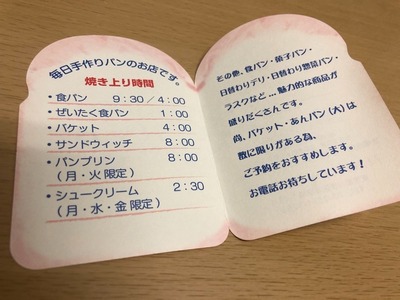 毎日手作りパンのお店です。
焼き上り時間
・食パン 9:30/4:00
・ぜいたく食パン 1:00
・バケット 4:00
・サンドウィッチ 8:00
・パンプリン 8:00
(月・火限定)
・シュークリーム 2:30
(月・水・金限定)
その他、食パン・菓子パン・
日替わりデリ・日替わり惣菜パン・
ラスクなど…魅力的な商品が
盛りだくさんです。
尚、バケット・あんパン(大)は
数に限りがある為、
ご予約をおすすめします。
お電話お待ちしています!